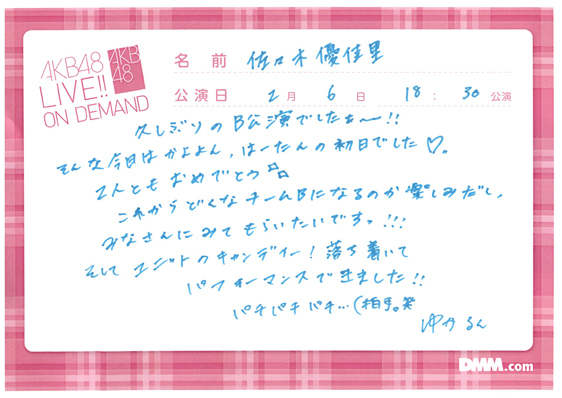 AKB48
LIVE!!
ON DEMAND
AKB
48
名 前 佐々木優佳里
公演日 2月 6日 18:30公演
久しぶりのB公演でしたぁ〜!!
そんな今日はかよよん、はーたんの初日でした♡。
2人ともおめでとう
これからどくなチームBになるのか楽しみだし、
みなさんにみてもらいたいですッ!!!
そしてユニットのキャンディー!落ち着いて
パフォーマンスできました!!
パチパチパチ…(拍手。笑
ゆかるん
DMM.com